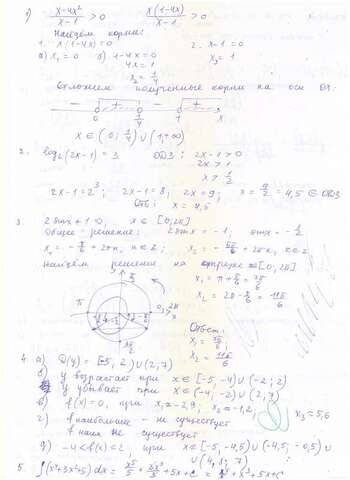 1) (x-4x²)/(x-1) > 0    x(1-4x)/(x-1) > 0
Найдём корни:
1. x(1-4x)=0    2. x-1=0
а) x₁=0  б) 1-4x=0    x₃=1
4x=1
x₂=1/4
Отложим полученные корни на оси OX
- + - +
0 1/4 1 x
x ∈ (0; 1/4) ∪ (1; +∞)
2. log₂(2x-1)=3    ОДЗ: 2x-1>0
2x>1
x>1/2
2x-1=2³; 2x-1=8; 2x=9; x=9/2=4,5 ∈ ОДЗ
Отв: x=4,5
3. 2sinx+1=0, x ∈ [0; 2π]
Общее решение: 2sinx=-1; sinx=-1/2
x₁=-π/6+2πn, n∈Z; x₂=-5π/6+2πn, n∈Z
Найдём решения на отрезке [0; 2π]
x₁=π+π/6=7π/6
x₂=2π-π/6=11π/6
π/2
π
0; 2π
3π/2
Ответ:
x₁=7π/6;
x₂=11π/6
4. а) D(y)=[-5; 2)∪(2; 7)
б) y возрастает при x∈[-5; -4)∪(-2; 2)
y убывает при x∈(-4; -2)∪(2; 7)
в) f(x)=0, при x₁=-2,9, x₂=-1,2, x₃=5,6
г) y наибольшее - не существует
y наим не существует
д) -4<f(x)<2, при x∈[-5; -4,5)∪(-4,5; -0,5)∪
∪(4,8; 7)
5. ∫(x⁴+3x²+5)dx = x⁵/5 + 3x³/3 + 5x+C = x⁵/5+x³+5x+C